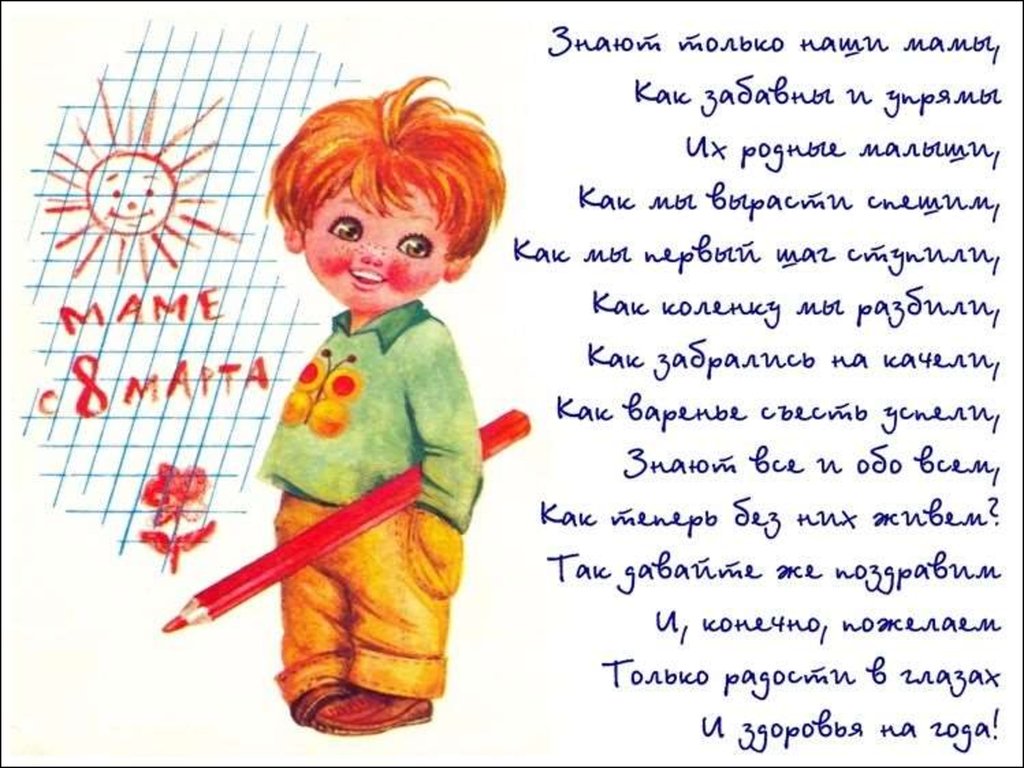 МАМЕ
С 8 МАРТА
Знают только наши мамы,
Как забавны и упрямы
Их родные малыши,
Как мы вырасти спешим,
Как мы первый шаг ступили,
Как коленку мы разбили,
Как забрались на качели,
Как варенье съесть успели,
Знают все и обо всем,
Как теперь без них живем?
Так давайте же поздравим
И, конечно, пожелаем
Только радости в глазах
И здоровья на года!